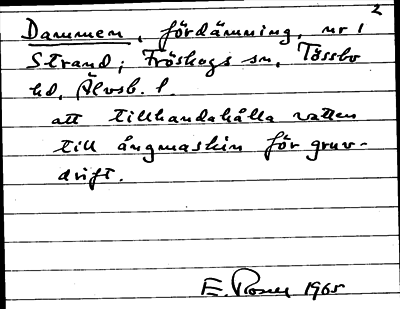 2
Dammen, fördämning, nr 1
Strand; Fröskogs sn, Tössbo
hd, Älvsb. l.
att tillhandahålla vatten
till ångmaskin för gruv-
drift.
E. Rosell 1965